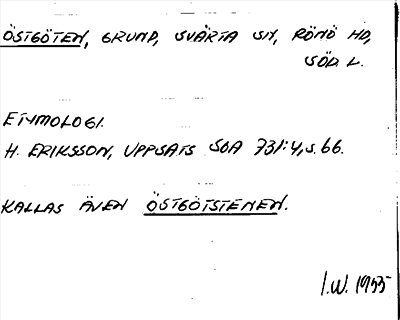 ÖSTGÖTEN, GRUND, SVÄRTA SN, RÖNÖ HD,
SÖD. L.
ETYMOLOGI.
H. ERIKSSON, UPPSATS SOA 731:4, S. 66.
KALLAS ÄVEN ÖSTGÖTSTENEN.
I.W. 1955